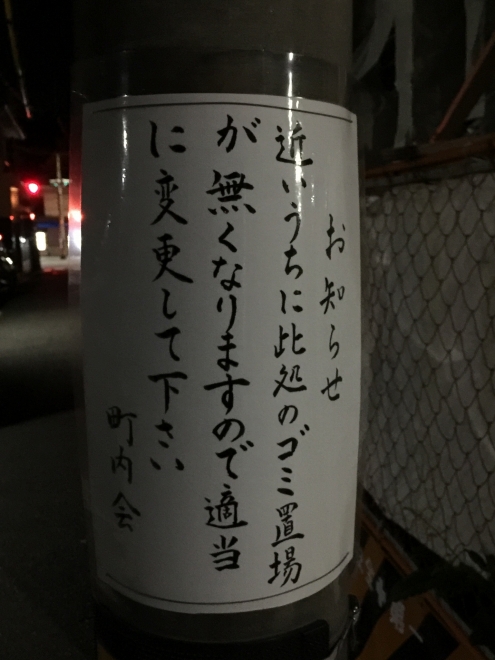 お知らせ
近いうちに此処のゴミ置場
が無くなりますので適当
に変更して下さい
町内会